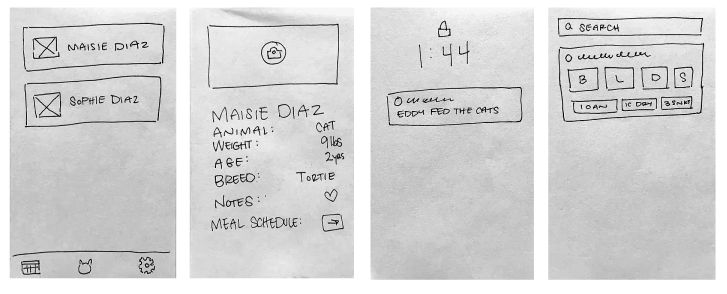 MAISIE DIAZ
SOPHIE DIAZ
MAISIE DIAZ
ANIMAL: CAT
WEIGHT: 9 lbs
AGE: 2 yrs
BREED: TORTIE
NOTES: ♡
MEAL SCHEDULE: →
1:44
EDDY FED THE CATS
SEARCH
B L D S